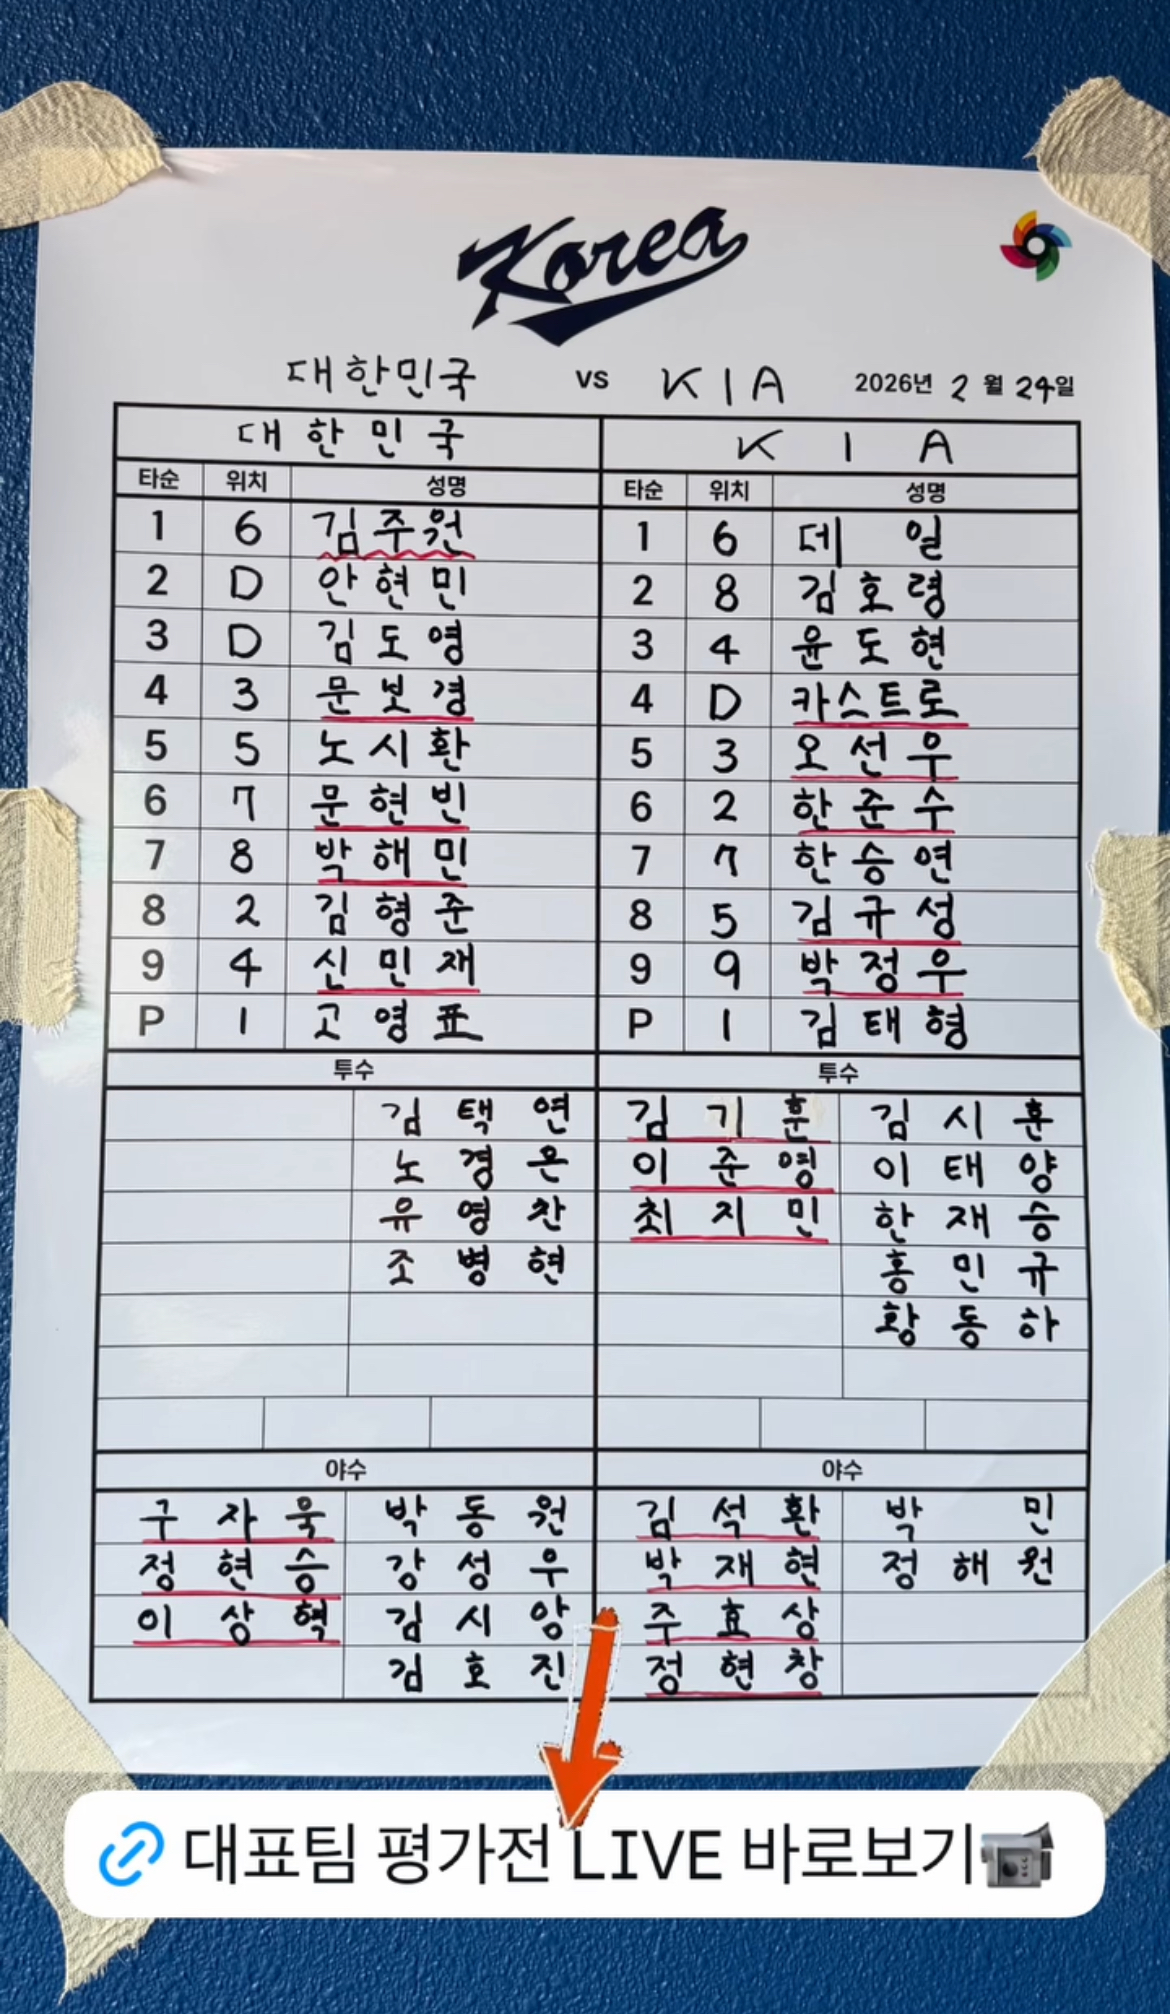 Korea
대한민국 vs KIA 2026년 2월 24일
대한민국 KIA
타순 위치 성명 타순 위치 성명
1 6 김주원 1 6 데일
2 D 안현민 2 8 김호령
3 D 김도영 3 4 윤도현
4 3 문보경 4 D 카스트로
5 5 노시환 5 3 오선우
6 7 문현빈 6 2 한준수
7 8 박해민 7 7 한승연
8 2 김형준 8 5 김규성
9 4 신민재 9 9 박정우
P 1 고영표 P 1 김태형
투수 투수
김택연 김기훈 김시훈
노경은 이준영 이태양
유영찬 최지민 한재승
조병현 홍민규
황동하
야수 야수
구자욱 박동원 김석환 박민
정현승 강성우 박재현 정해원
이상혁 김시앙 주효상
김호진 정현창
대표팀 평가전 LIVE 바로보기